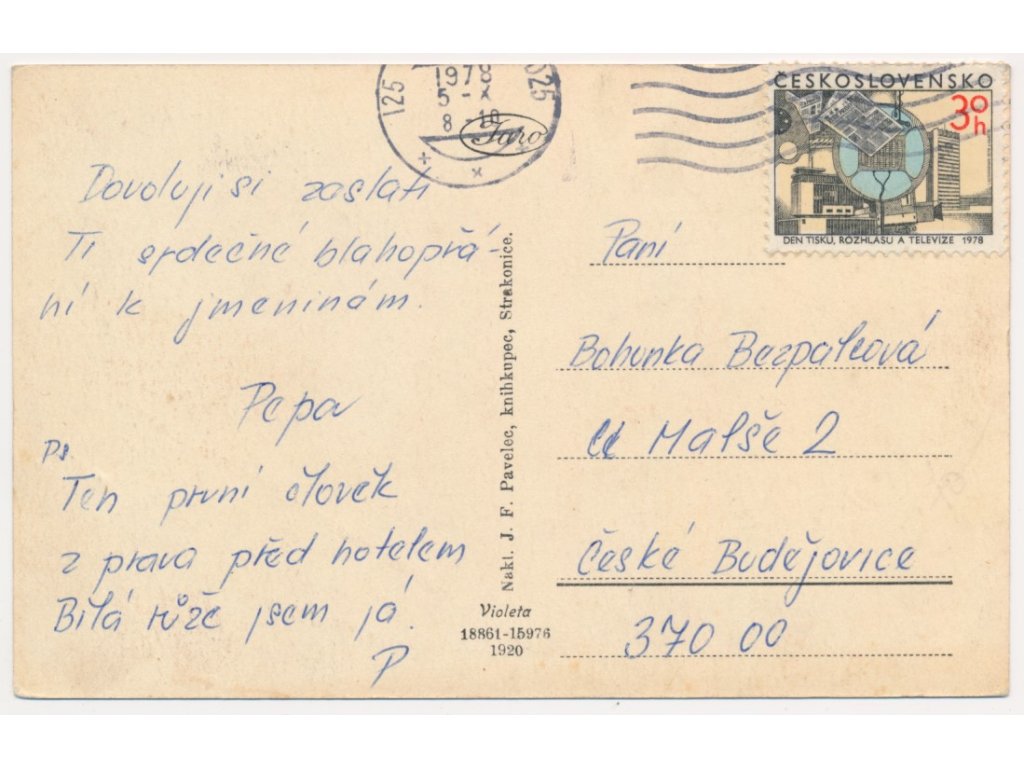 125
1978
5-X
8-10
025
Jaro
ČESKOSLOVENSKO
30h
DEN TISKU, ROZHLASU A TELEVIZE 1978
Dovoluji si zaslati
Ti srdečné blahopřá-
ní k jmeninám.
Pepa
Ps.
Ten první člověk
z prava před hotelem
Bílá růže jsem já.
P
Nakl. J. F. Pavelec, knihkupec, Strakonice.
Violeta
18861-15976
1920
Paní
Bohunka Bezpalcová
U Malše 2
České Budějovice
370 00